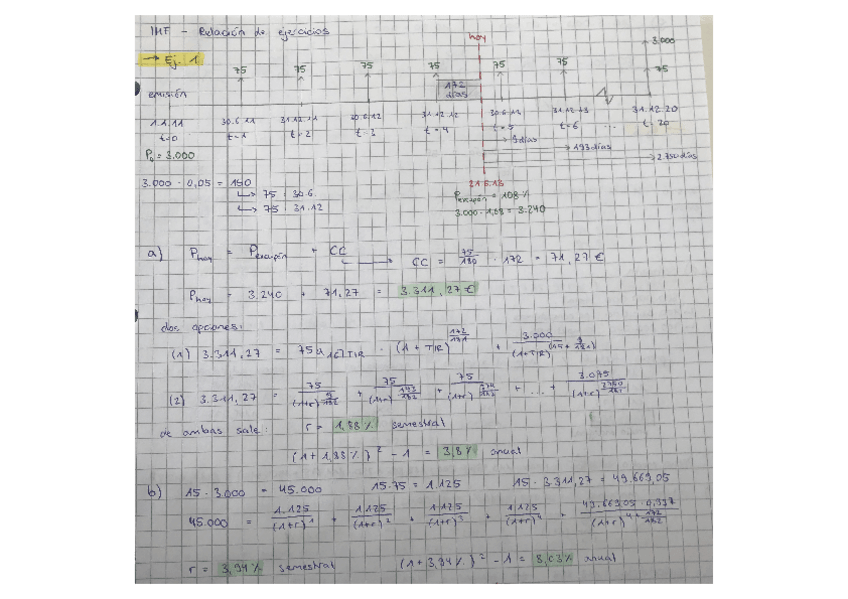 IMF - Relación de ejercicios
→ Ej. 1
hoy
3.000
75 75 75 75 75 75 75
172 días
emisión
1.1.11 30.6.11 31.12.11 30.6.12 31.12.12 30.6.13 31.12.13 31.12.20
t=0 t=1 t=2 t=3 t=4 t=5 t=6 ... t=20
→ 9 días
→ 193 días
→ 2.750 días
P₀ = 3.000
3.000 · 0,05 = 150
↳ 75 : 30.6.
↳ 75 : 31.12
21.6.13
P excupón = 108 %
3.000 · 1,08 = 3.240
a) P hoy = P excupón + CC
→ CC = 75/180 · 172 = 71,27 €
P hoy = 3.240 + 71,27 = 3.311,27 €
dos opciones:
(1) 3.311,27 = 75 a 16⌉TIR · (1 + TIR)^172/181 + 3.000/(1+TIR)
(2) 3.311,27 = 75/(1+r)^9/182 + 75/(1+r)^193/182 + 75/(1+r) + ... + 3.075/(1+r)
de ambas sale: r = 1,88 % semestral
(1 + 1,88 %)² - 1 = 3,8 % anual
b) 15 · 3.000 = 45.000 15 · 75 = 1.125 15 · 3.311,27 = 49.669,05
45.000 = 1.125/(1+r)¹ + 1.125/(1+r)² + 1.125/(1+r)³ + 1.125/(1+r)⁴ + 49.669,05 · 0,997/(1+r)^4+172/182
r = 3,94 % semestral (1 + 3,94 %)² - 1 = 8,03 % anual